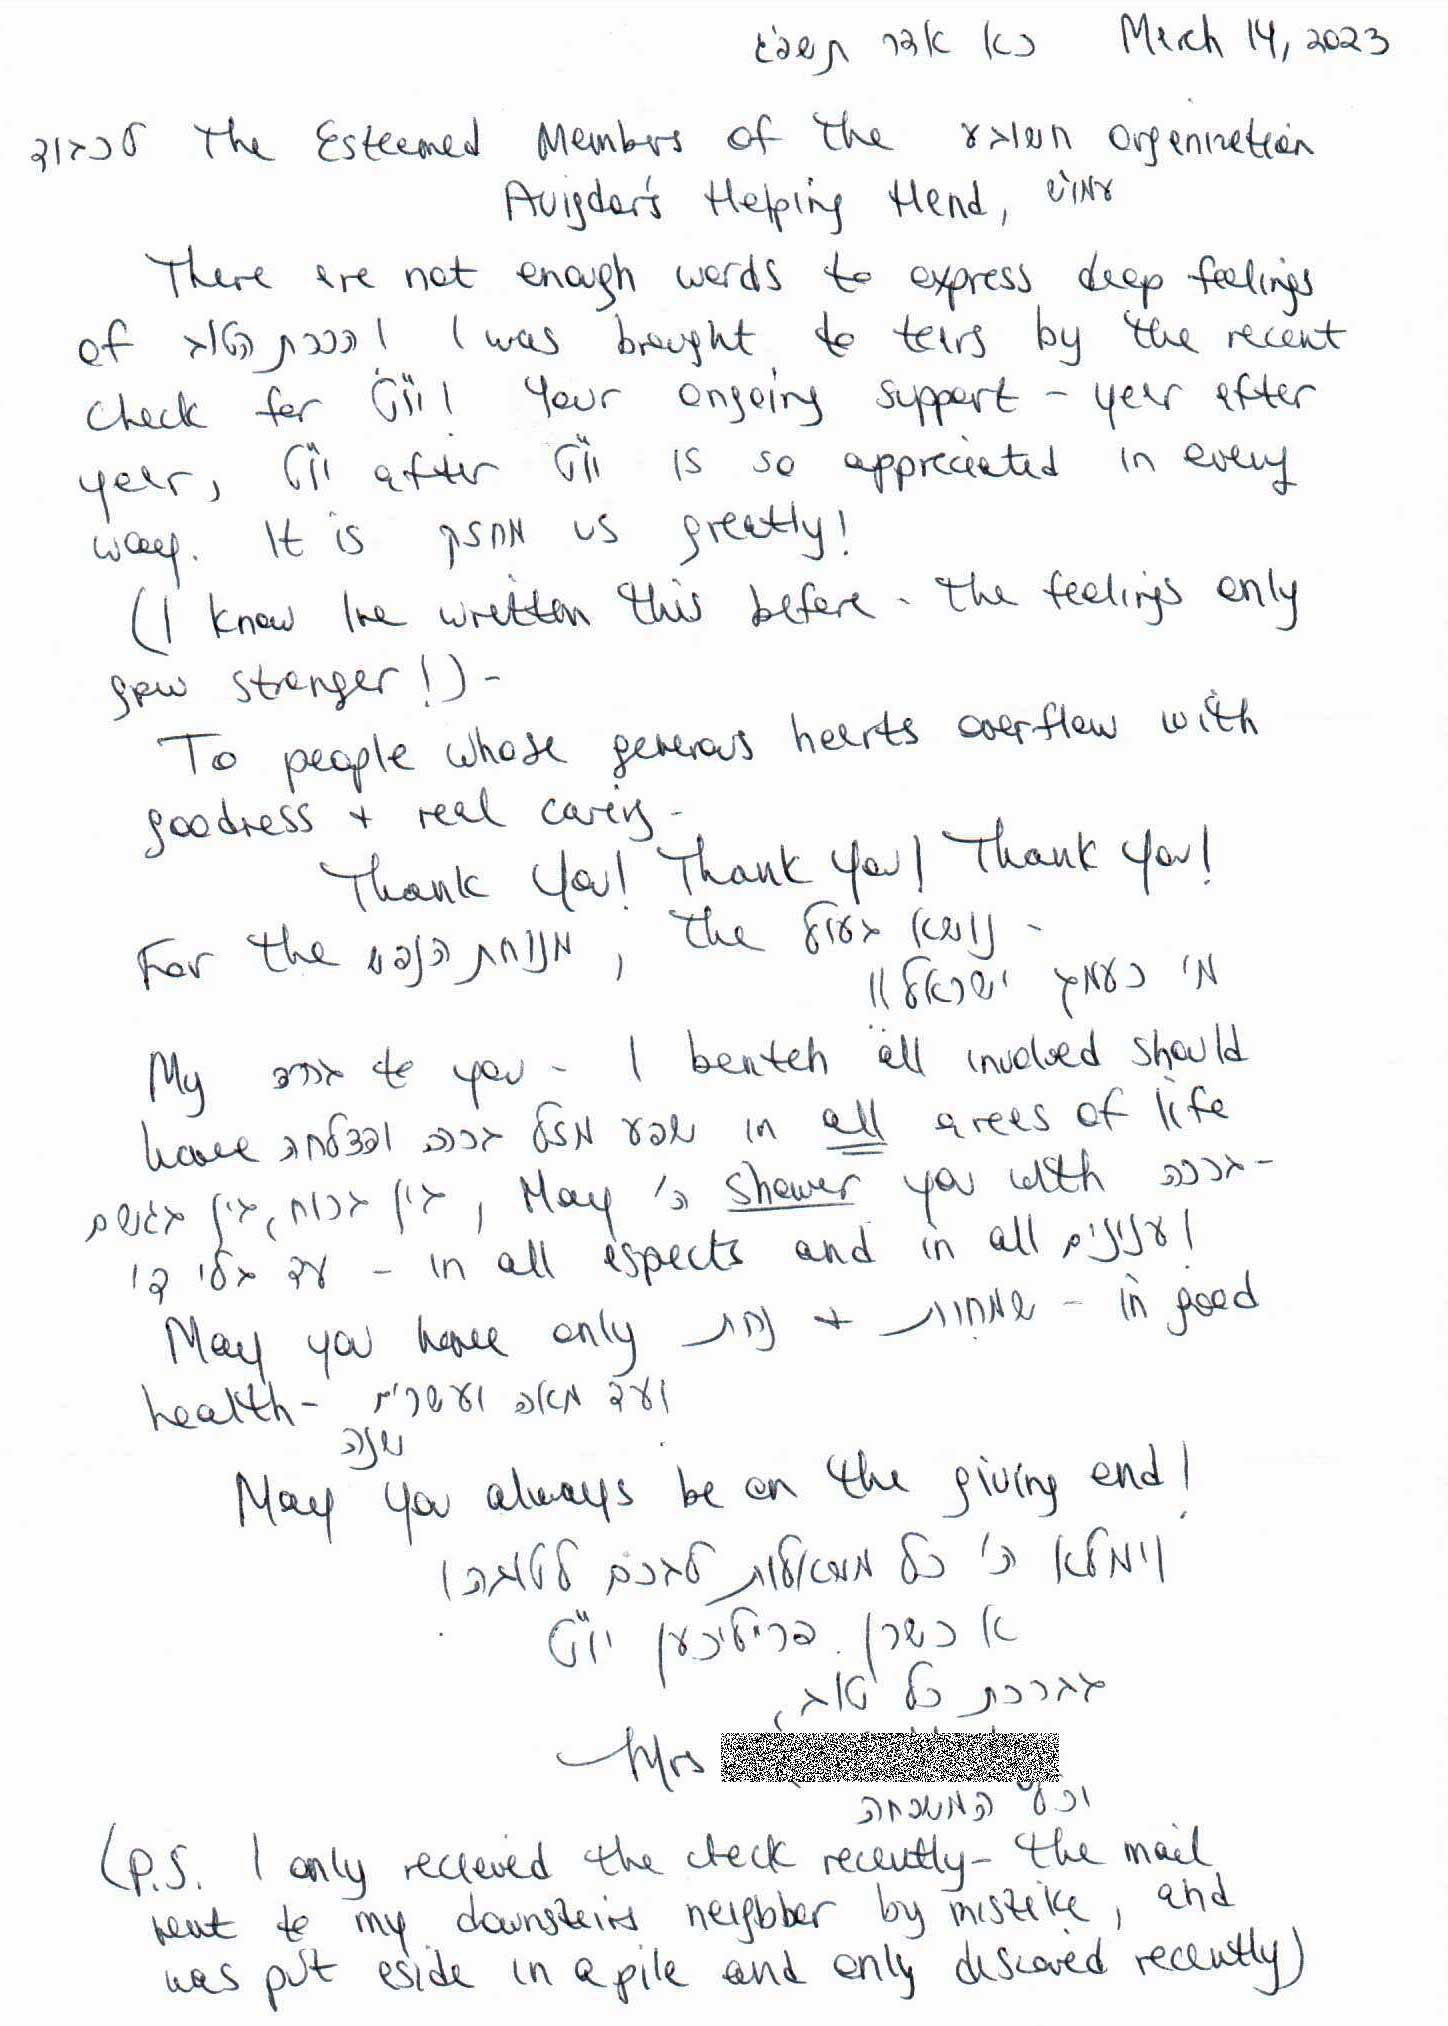 כא אדר תשפ"ג March 14, 2023
לכבוד The Esteemed Members of the חשובע Organization
Avigdor's Helping Hand, עמו"ש
There are not enough words to express deep feelings
of הכרת הטוב! I was brought to tears by the recent
check for יו"ט! Your ongoing support - year after
year, יו"ט after יו"ט is so appreciated in every
way. It is מחזק us greatly!
(I know I've written this before - the feelings only
grew stronger!) -
To people whose generous hearts overflow with
goodness + real caring -
Thank You! Thank You! Thank You!
For the מנוחת הנפש, the נושא בעול -
מי כעמך ישראל!!
My ברכה to you - I bentch all involved should
have שפע מזל ברכה והצלחה in all areas of life
בין ברוח, בין בגשם, May ה' shower you with ברכה -
עד בלי די - in all aspects and in all ענינים!
May you have only נחת + שמחות - in good
health - ועד מאה ועשרים
שנה
May you always be on the giving end!
וימלא ה' כל משאלות לבכם לטובה!
א כשרן פריילכען יו"ט
בברכת כל טוב,
Mrs
וכל המשפחה
(P.S. I only recieved the check recently - the mail
went to my downstairs neighbor by mistake, and
was put aside in a pile and only discoved recently)